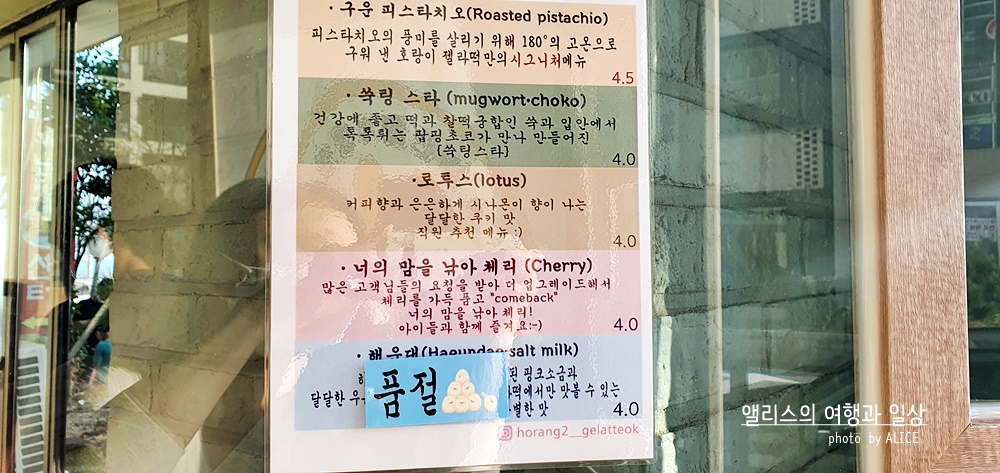 · 구운 피스타치오(Roasted pistachio)
피스타치오의 풍미를 살리기 위해 180°의 고온으로
구워 낸 호랑이 젤라떡만의시그니처메뉴
4.5
· 쑥링 스타 (mugwort·choko)
건강에 좋고 떡과 찰떡궁합인 쑥과 입안에서
톡톡튀는 팝핑초코가 만나 만들어진
{쑥링스타}
4.0
·로투스(lotus)
커피향과 은은하게 시나몬이 향이 나는
달달한 쿠키 맛
직원 추천 메뉴 :)
4.0
· 너의 맘을 낚아 체리 (Cherry)
많은 고객님들의 요청을 받아 더 업그레이드해서
체리를 가득 품고 "comeback"
너의 맘을 낚아 체리!
아이들과 함께 즐겨요:-)
4.0
· 해운대(Haeundae·salt milk)
된 핑크소금과
달달한 우 떡에서만 맛볼 수 있는
별한 맛
4.0
품절
horang2__gelatteok
앨리스의 여행과 일상
photo by ALICE